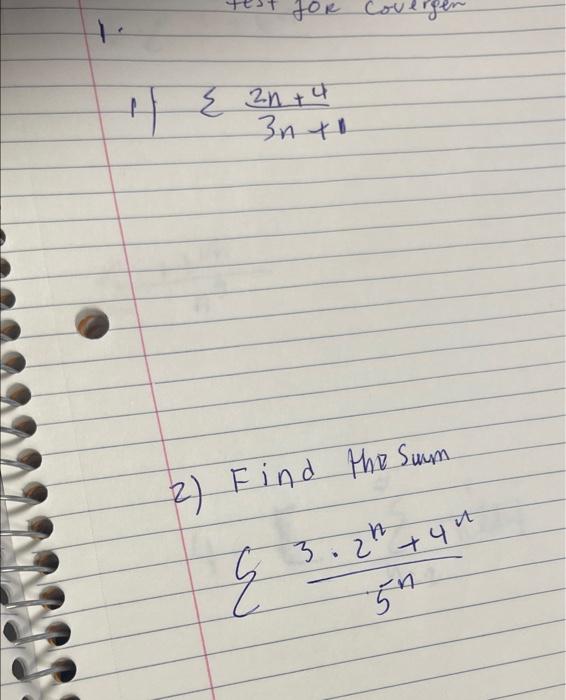 test for Covergen
1.
1) Σ 2n+4
3n+1
2) Find the Sum
Σ 3 · 2ⁿ + 4ⁿ
5ⁿ